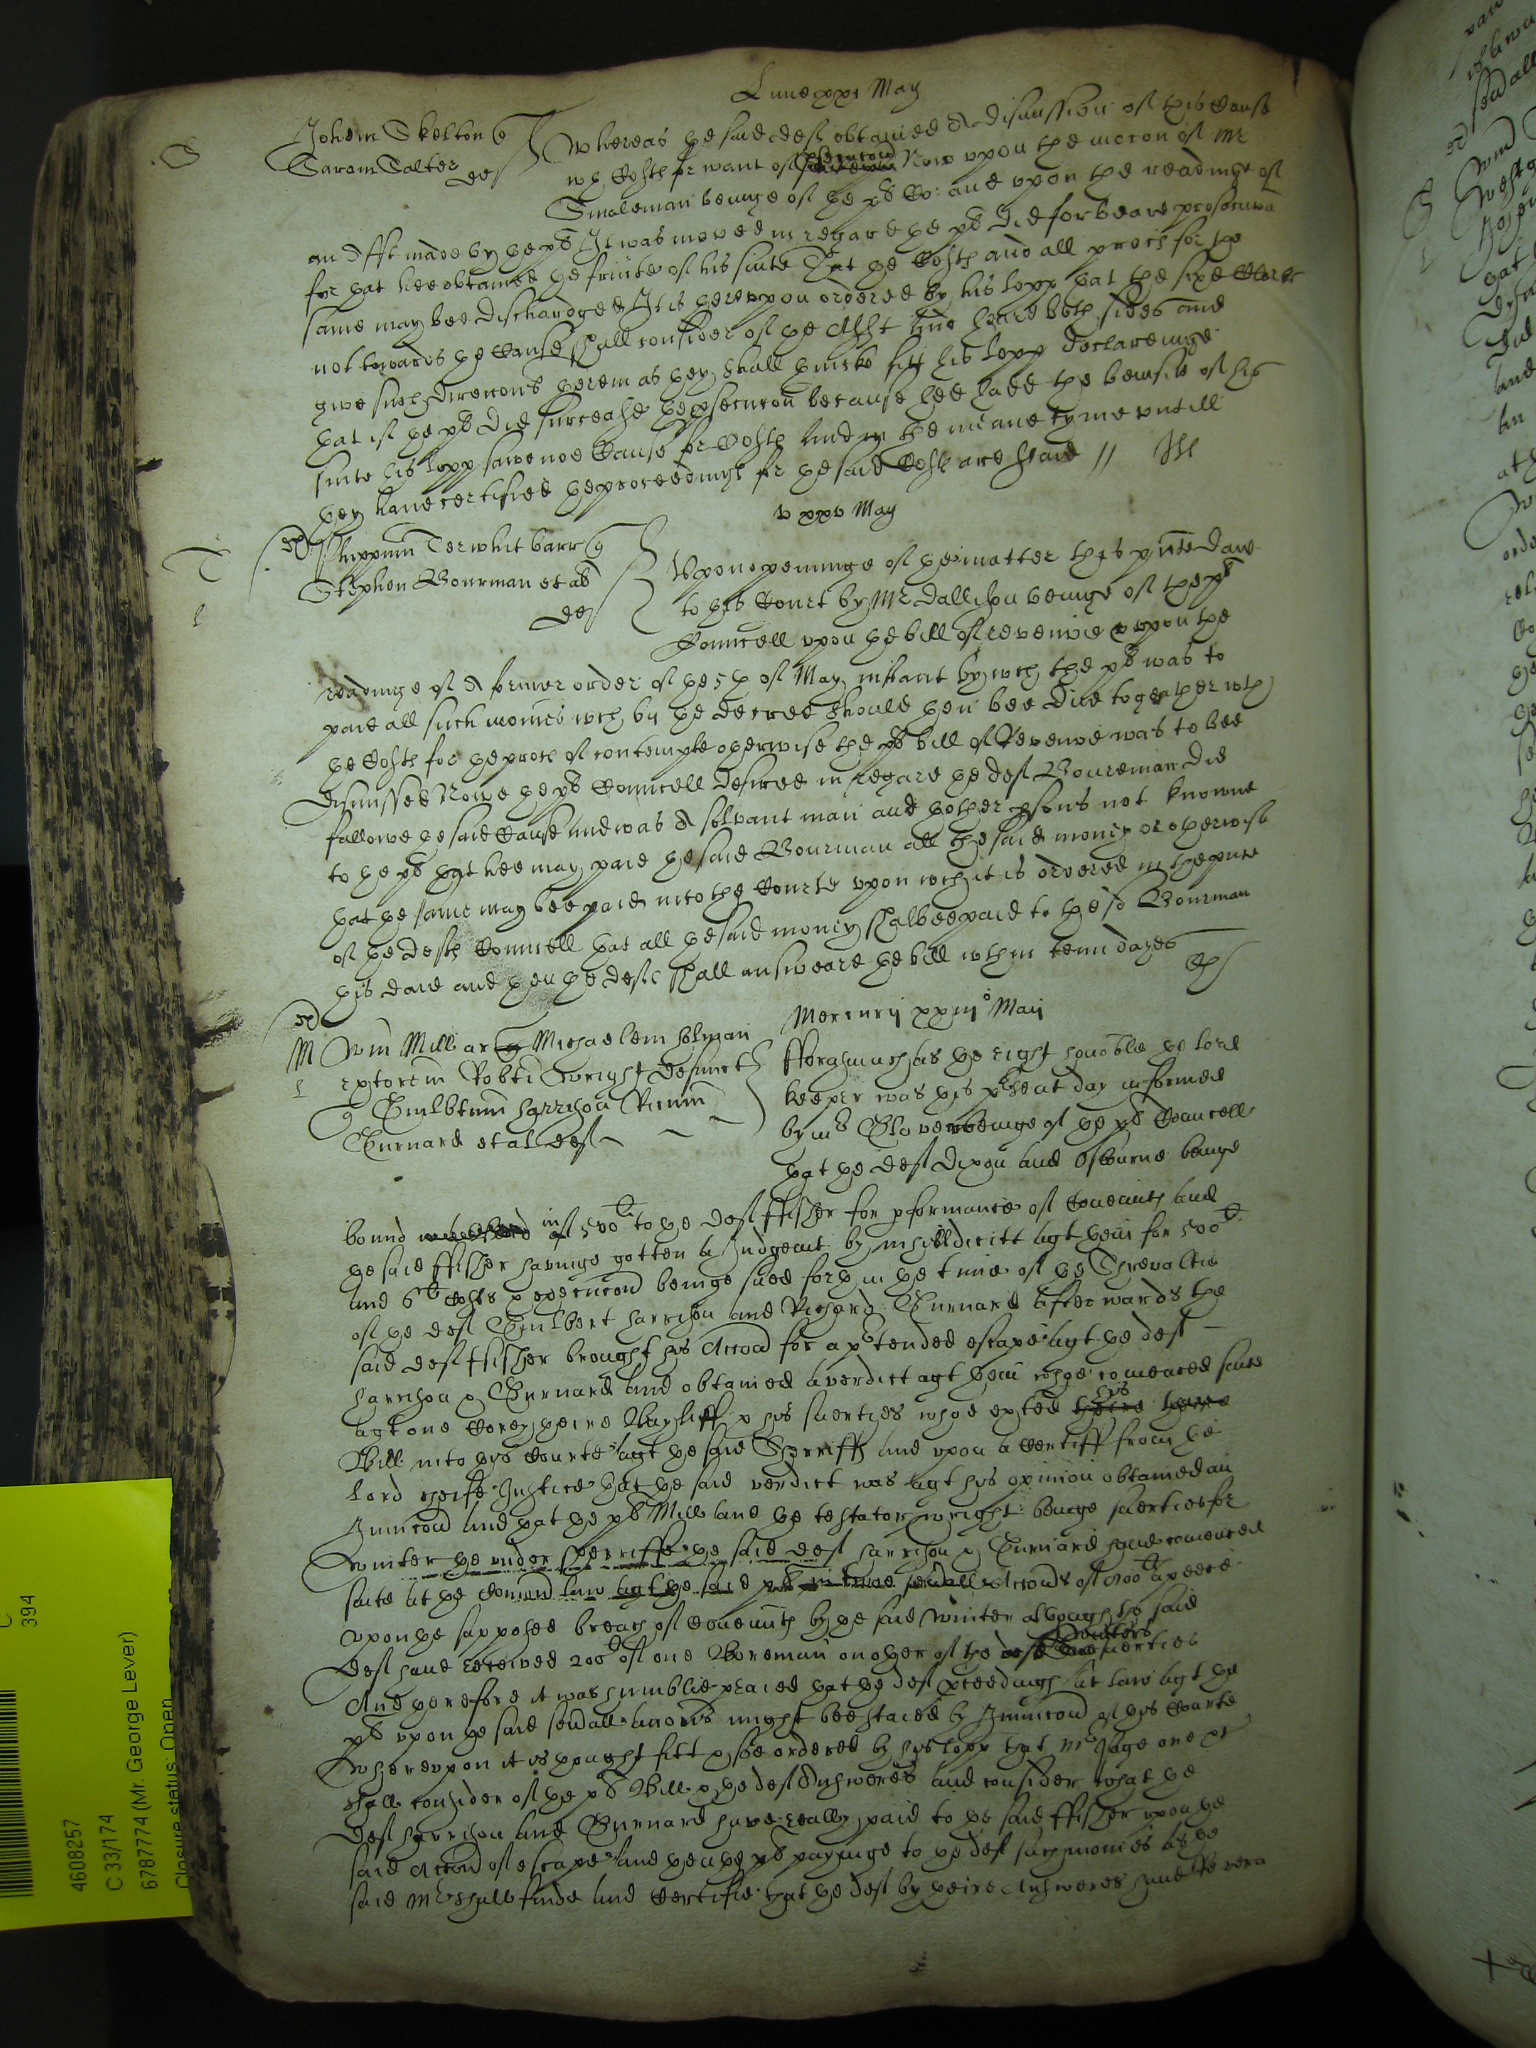 Lune xxi May
S
Johem Skelton q
Saram Salter
def
Whereas the said def obtained A dismission of this Cause
wth Costs for want of prosecucon Now upon the mocon of Mr
Smaleman beinge of the plt Co: and upon the readinge of
an Afft made by the plt It was moved in regard the plt did forbeare prosecucon
for that hee obtained the fruite of his suite That the Costs and all proces for the
same may bee discharged It is thereupon ordered by his lopp that the sixe Clerks
not towards the Cause shall consider of the Afft and heare both sides and
give such direccons therein as they shall thinke fitt his lopp declareinge
that if the plt did surcease the psecucon because hee hadd the benefitt of his
suite his lopp sawe noe Cause for Costs And in the meane tyme untill
they have certified the proceedings for the said Costs are staied //
v xxv May
T
Phippum Terwhit barr q
Stephen Bourman et al
def
Upon openinge of the matter this pnte daie
to this Court by Mr Dallison beinge of the plts
Councell upon the bill of revewe & upon the
readinge of A former order of the 5th of May instant by wch the plt was to
paie all such monies wch by the decree should then bee due together wth
the Costs for the proces of contempte otherwise the plts bill of Revewe was to bee
dismissed Nowe the plts Councell desired in regard the def Boureman did
followe the said Cause and was A solvant man and thother psons not knowne
to the plt that hee may paie the said Bourman all the said money or otherwise
that the same may bee paid into the Courte upon wch it is ordered in the pnce
of the defts Councell that all the said money shalbee paid to the sd Bourman
this daie and then the deft shall answeare the bill wthin tenn dayes
Mercurij xxiij° Maij
M
Wm Mill ar & Michaelem Holman
exptorem Robti Wright defunct
q Cuthbtum Harrison Ricum
Burnard et al def
Forasmuch as the right honoble the lord
keeper was this present day informed
by Mr Glover beinge of the plts Councell
that the def Dixon and Osburne beinge
bound in 500li to the def ffisher for pformance of Covennts and
the said ffisher havinge gotten a Judgemt by nihil dicitt agt them for 500li
and 6li Costs & execucon beinge sued forth in the time of the Shrevaltie
of the def Cuthbert Harrison and Richard Burnard afterwards the
said def ffisher brought his Accon for a ptended escape agt the def
Harrison & Burnard and obtained a verdict agt them whoe comenced suite
agt one Corey theire Bayliff & his suerties whoe exhted his
Bill into this Courte agt the said Sherriffs and upon a Certiff from the
Lord Cheife Justice that the said verdict was agt his opinion obtained an
Iniunccon and that the plt Mill and the testator Wright beinge suerties for
Winter the under sherriffe the said def Harrison & Burnard have comenced
suite at the Comon law agt the said plts Accons of 500li apeece
upon the supposed breach of Covennts by the said Winter although the said
def have received 200li of one Boreman another of the Winters suerties
And therefore it was humblie praied that the def pceedings at law agt the
plts upon the said sevall accons might bee staied by Iniunccon of this Courte
Whereupon it is thought fitt & soe ordered by his lopp that Mr Page one &c
shall consider of the plts Bill & the def Answeres and consider what the
def Harrison and Burnard have really paid to the said ffisher upon the
said Accon of escape and then the plts payinge to the def such monies as the
said Mr shall finde and Certifie that the def by theire Answeres
C
394
4608257
C 33/174
6787774 (Mr. George Lever)
Closure status: Open